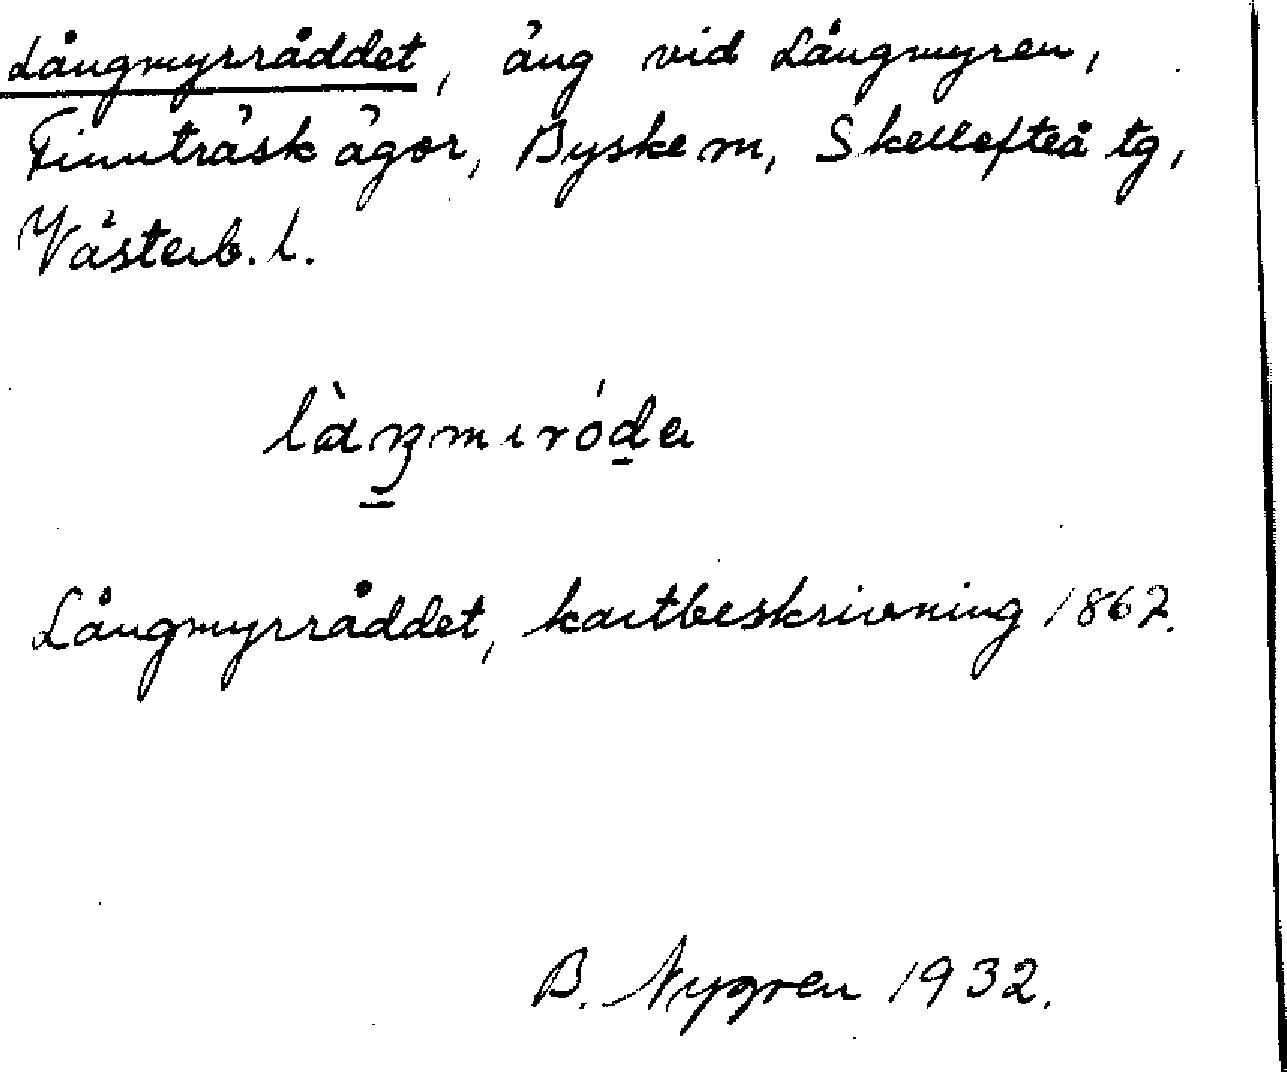 Långmyrråddet, äng vid Långmyren,
Finnträsk ägor, Byske sn, Skellefteå tg,
Västerb. l.
làŋmıróda
Långmyrråddet, kartbeskrivning 1862.
B. Nygren 1932.